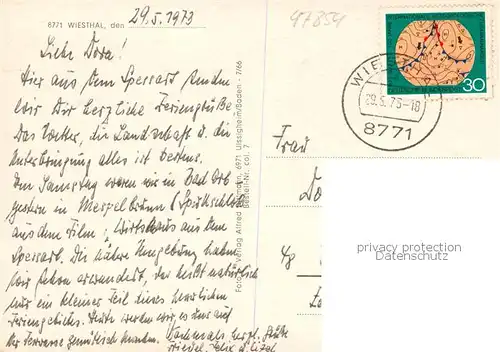 8771 WIESTHAL, den 29.5.1973
47854
Liebe Dora!
Hier aus dem Spessart senden
wir Dir herzliche Feriengrüße
Das Wetter, die Landschaft u. die
Unterbringung alles ist bestens.
Am Samstag waren wir in Bad Orb
gestern in Mespelbrunn (Spukschloß
aus dem Film: Wirtshaus aus dem
Spessart. Die nähere Umgebung haben
wir schon erwandert, das heißt natürlich
nur ein kleiner Teil dieses herrlichen
Feriengebietes. Heute werden wir es zur auf
der Terrasse gemütlich machen. Nochmals herzl. Grüße
Foto u. Verlag Alfred 6971 Uissigheim/Baden - 7/66
Bestell-Nr. Col. 7
DEUTSCHE BUNDESPOST
30
29.5.73-18
8771
Frau
privacy protection
Datenschutz